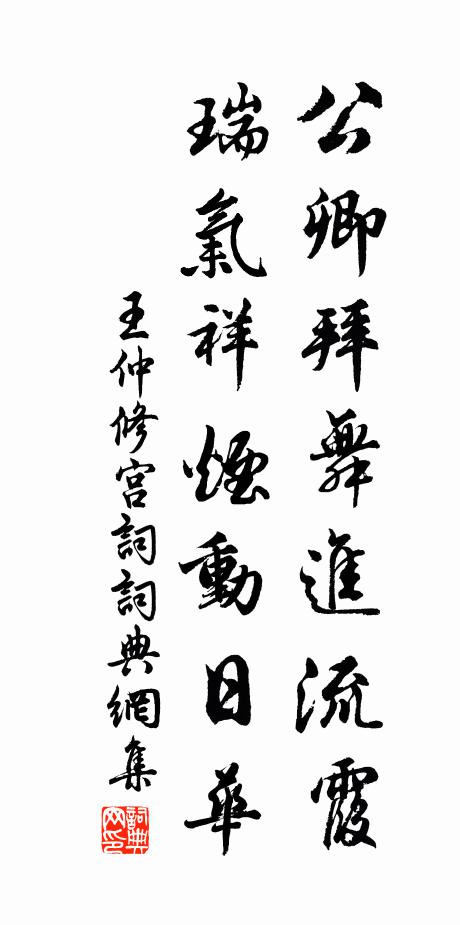 公卿拜舞進流霞
瑞氣祥煙動日華
王仲修宮詞詞典網集
詞典网印